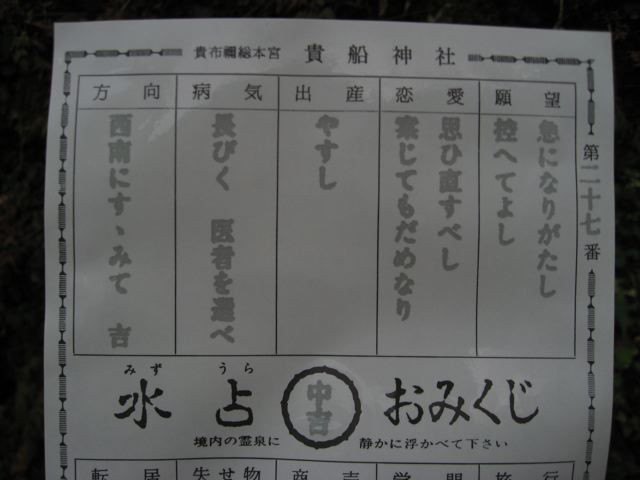 貴布禰総本宮 貴船神社
第二十七番
願望
急になりがたし
控へてよし
恋愛
思ひ直すべし
案じてもだめなり
出産
やすし
病気
長びく 医者を選べ
方向
西南にすゝみて 吉
みず うら
水占 中吉 おみくじ
境内の霊泉に 静かに浮かべて下さい
旅行
学問
商売
失せ物
転居